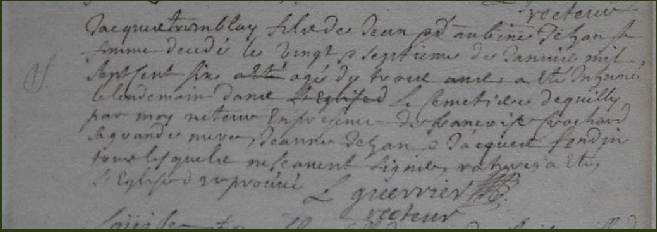 recteur
Jacques tremblay fils de Jean et d'aubine Jehan sa
femme decedé le vingt e septieme de Janvier mil
sept cent six agé de trois ans a eté inhumé
le lendemain dans l'Eglise le cemetiere de quilly
par moy recteur En presence de francoise
sa grande mere, Jeanne Jehan, e Jacques fendin
tous lesquels ne scavent signer, ratures a Eté,
l'Eglise
L guerrier
recteur